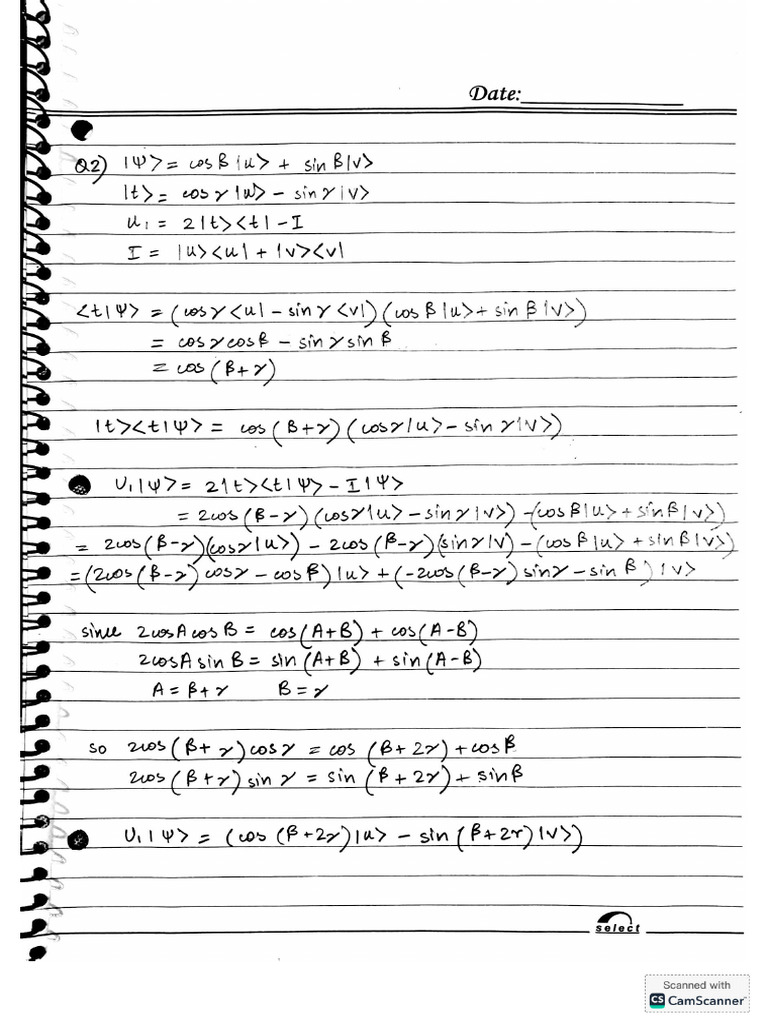 Date:
Q2) |Ψ> = cosβ|u> + sinβ|v>
|t> = cosγ|u> - sinγ|v>
u₁ = 2|t><t| - I
I = |u><u| + |v><v|
<t|Ψ> = (cosγ<u| - sinγ<v|)(cosβ|u> + sinβ|v>)
= cosγcosβ - sinγsinβ
= cos(β+γ)
|t><t|Ψ> = cos(β+γ)(cosγ|u> - sinγ|v>)
U₁|Ψ> = 2|t><t|Ψ> - I|Ψ>
= 2cos(β-γ)(cosγ|u> - sinγ|v>) - (cosβ|u> + sinβ|v>)
= 2cos(β-γ)(cosγ|u>) - 2cos(β-γ)(sinγ|v) - (cosβ|u> + sinβ|v>)
= (2cos(β-γ)cosγ - cosβ)|u> + (-2cos(β-γ)sinγ - sinβ)|v>
since 2cosAcosB = cos(A+B) + cos(A-B)
2cosAsinB = sin(A+B) + sin(A-B)
A = β+γ B = γ
so 2cos(β+γ)cosγ = cos(β+2γ) + cosβ
2cos(β+γ)sinγ = sin(β+2γ) + sinβ
U₁|Ψ> = (cos(β+2γ)|u> - sin(β+2γ)|v>)
select
Scanned with
CS CamScanner